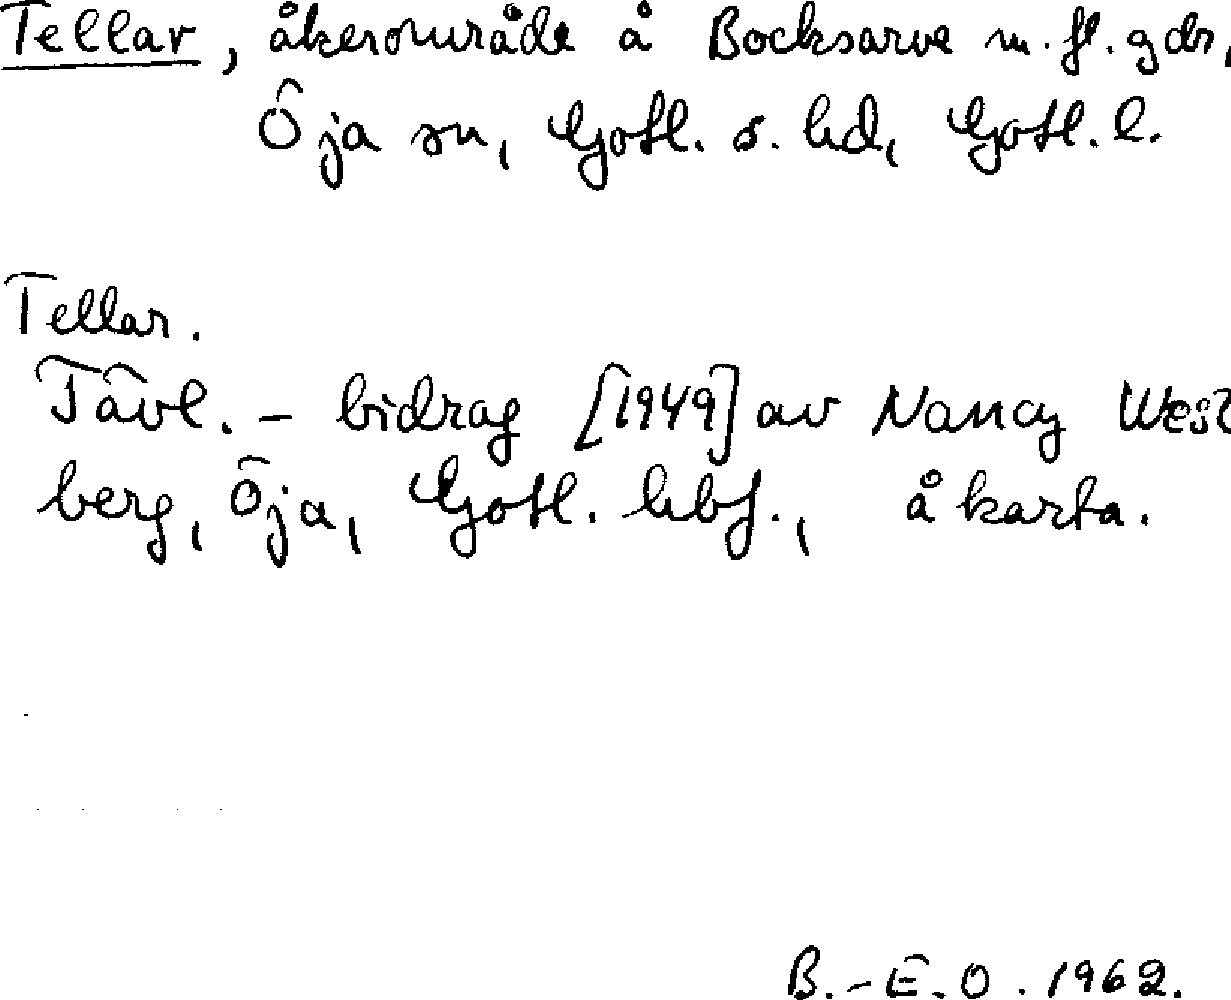 Tellar, åkerområde å Bocksarve m. fl. gdr,
Öja sn, Gotl. s. hd, Gotl. l.
Tellar.
Tävl. - bidrag [1949] av Nancy West
berg, Öja, Gotl. hbf., å karta.
B.-E. O. 1962.